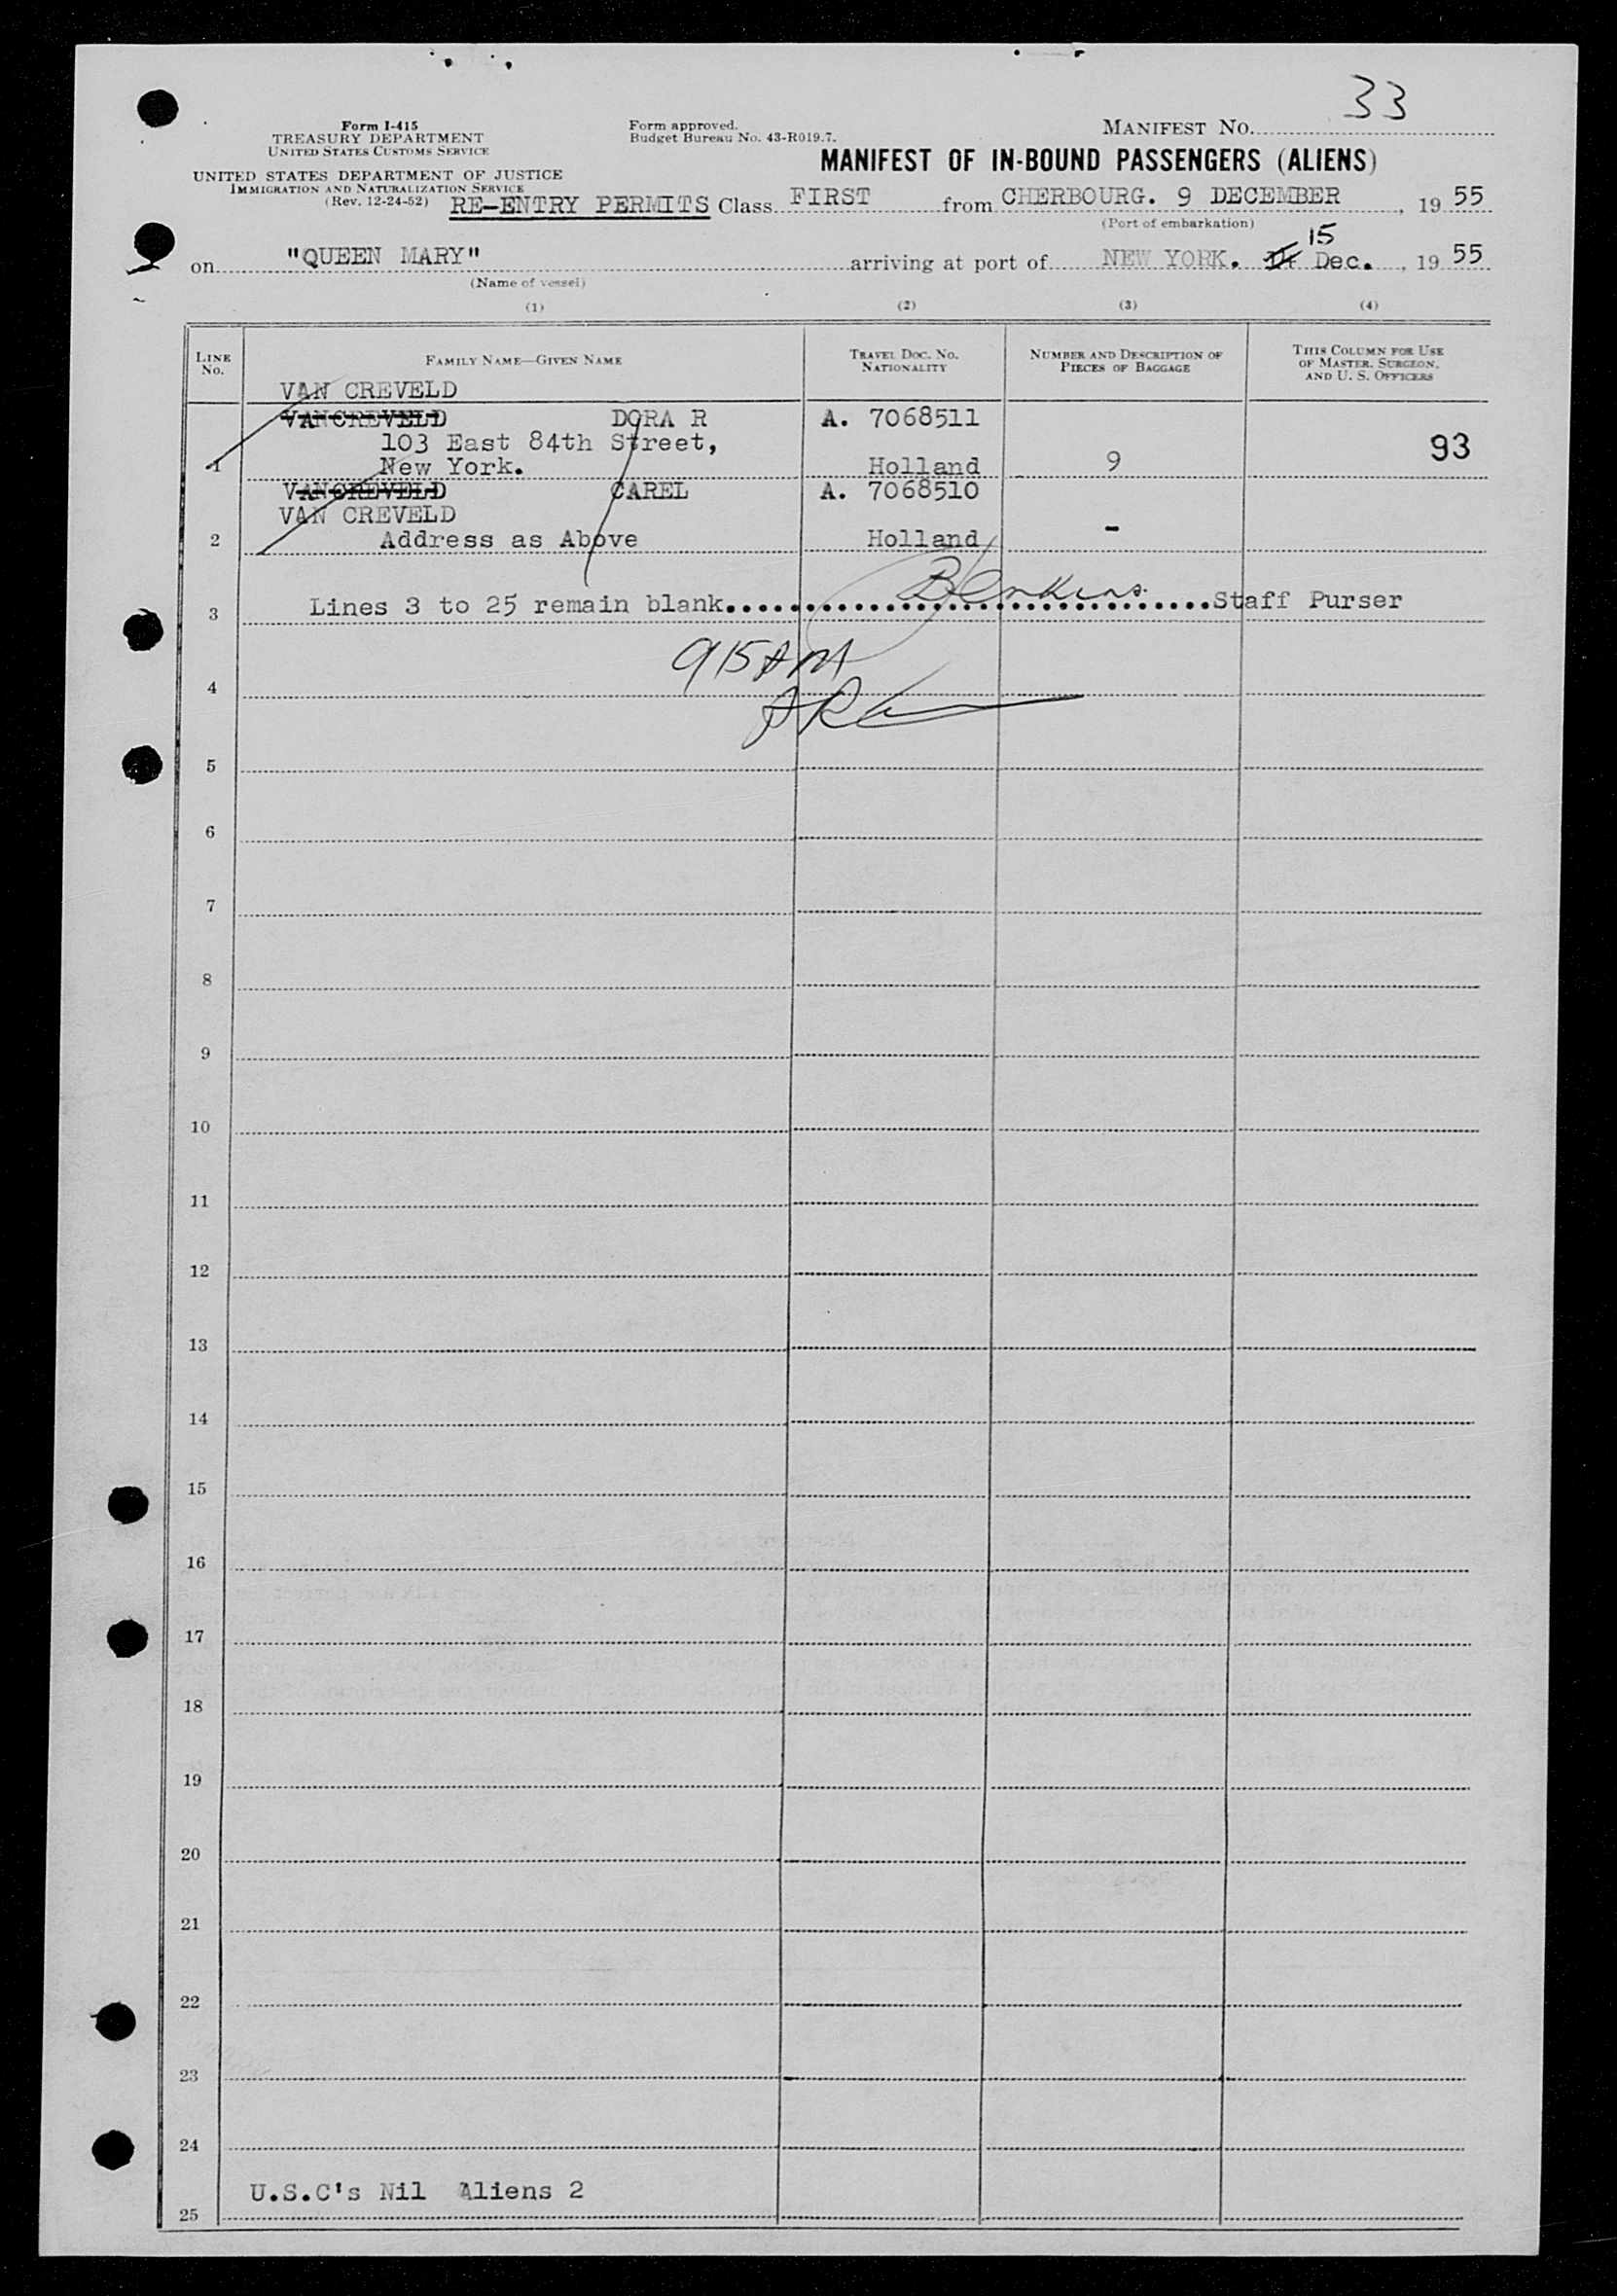 33
Form I-415
TREASURY DEPARTMENT
UNITED STATES CUSTOMS SERVICE
UNITED STATES DEPARTMENT OF JUSTICE
IMMIGRATION AND NATURALIZATION SERVICE
(Rev. 12-24-52)
Form approved.
Budget Bureau No. 43-R019.7.
MANIFEST NO.
MANIFEST OF IN-BOUND PASSENGERS (ALIENS)
RE-ENTRY PERMITS Class FIRST from CHERBOURG. 9 DECEMBER, 1955
(Port of embarkation)
15
on "QUEEN MARY" arriving at port of NEW YORK. 14 Dec., 1955
(Name of vessel)
(1) (2) (3) (4)
LINE NO.
FAMILY NAME—GIVEN NAME
TRAVEL DOC. NO. NATIONALITY
NUMBER AND DESCRIPTION OF PIECES OF BAGGAGE
THIS COLUMN FOR USE OF MASTER, SURGEON, AND U. S. OFFICERS
VAN CREVELD
VANCREVELD DORA R A. 7068511
103 East 84th Street, 93
1 New York. Holland 9
VANCREVELD CAREL A. 7068510
VAN CREVELD
2 Address as Above Holland -
3 Lines 3 to 25 remain blank. Staff Purser
915 AM
4
5
6
7
8
9
10
11
12
13
14
15
16
17
18
19
20
21
22
23
24
U.S.C's Nil Aliens 2
25